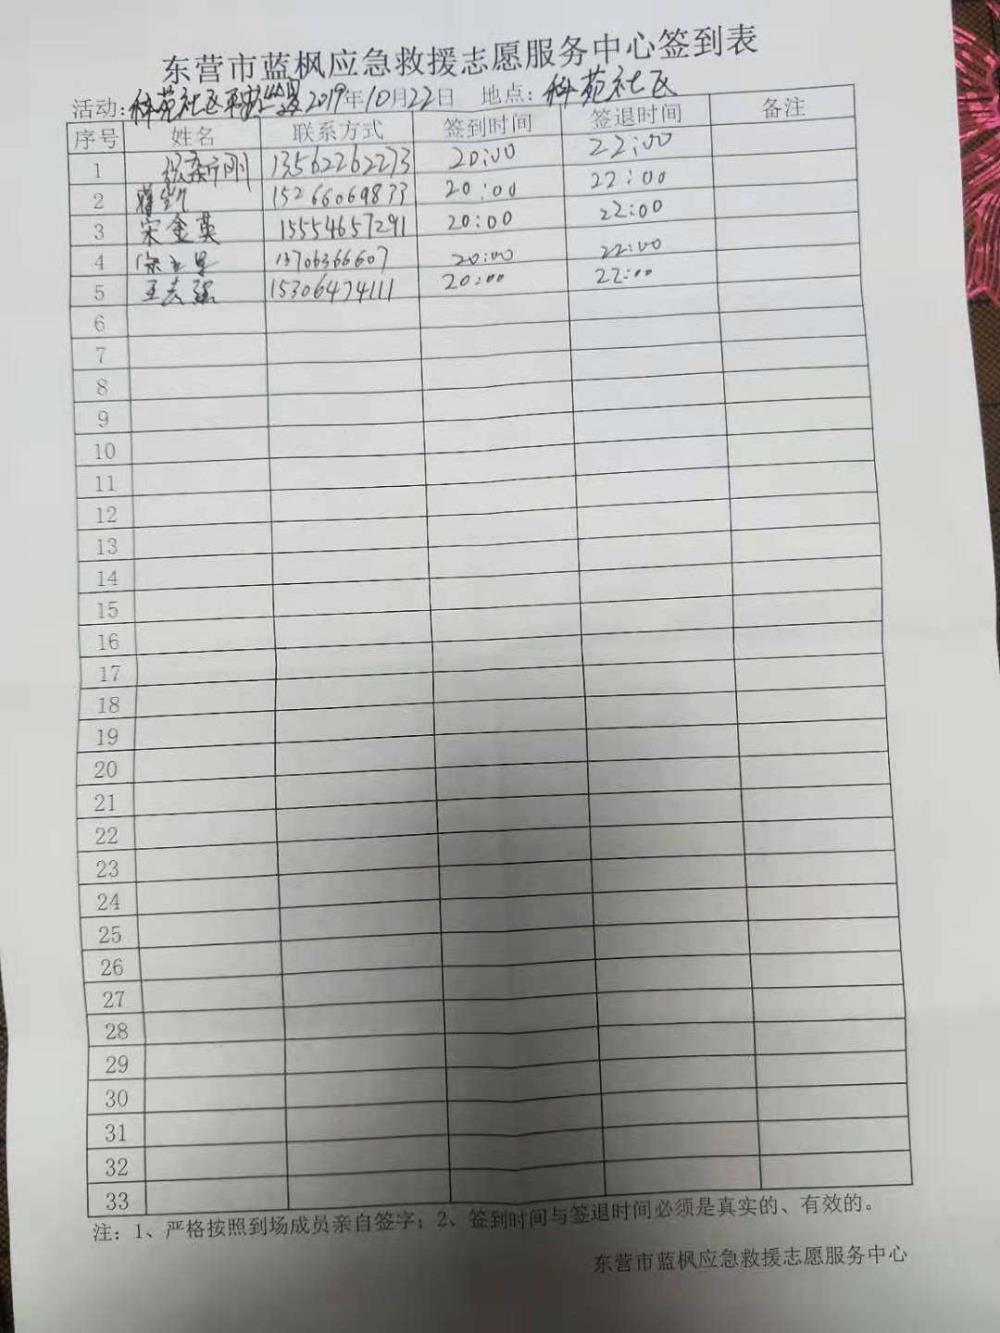 东营市蓝枫应急救援志愿服务中心签到表
活动：科苑社区 2019年10月22日 地点：科苑社区
序号 姓名 联系方式 签到时间 签退时间 备注
1 13562262273 20:00 22:00
2 15266069833 20:00 22:00
3 宋金英 15554657291 20:00 22:00
4 13706366607 20:00 22:00
5 王志强 15306474111 20:00 22:00
6
7
8
9
10
11
12
13
14
15
16
17
18
19
20
21
22
23
24
25
26
27
28
29
30
31
32
33
注：1、严格按照到场成员亲自签字；2、签到时间与签退时间必须是真实的、有效的。
东营市蓝枫应急救援志愿服务中心